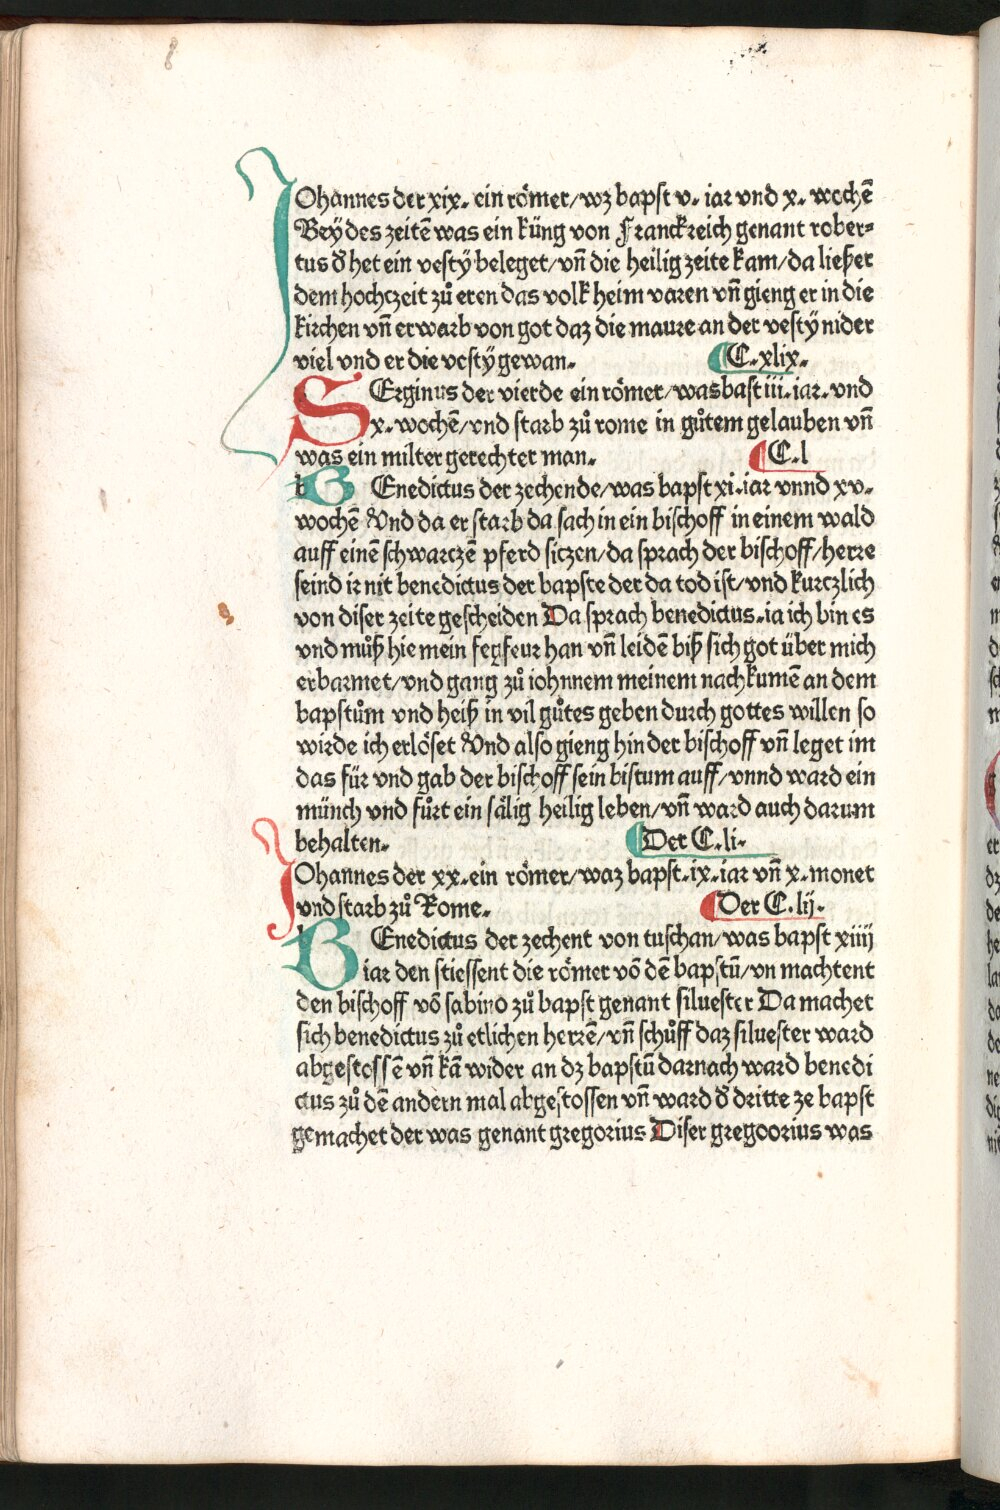 JOhannes der xix. ein römer/wz bapst v. iar vnd x. wochē
Beÿ des zeitē was ein küng von Franckreich genant rober⸗
tus ð het ein vestÿ beleget/vn̄ die heilig zeite kam/da ließ er
dem hochczeit zů eren das volk heim varen vn̄ gieng er in die
kirchen vn̄ erwarb von got daz die maure an der vestÿ nider
viel vnd er die vestÿ gewan. C. xlix.
SErginus der vierde ein römer/was bast iii. iar. vnd
x. wochē/vnd starb zů rome in gůtem gelauben vn̄
was ein milter gerechter man. C. l
BEnedictus der zechende/was bapst xi. iar vnnd xv.
wochē Vnd da er starb da sach in ein bischoff in einem wald
auff einē schwarczē pferd siczen/da sprach der bischoff/herre
seind ir nit benedictus der bapste der da tod ist/vnd kurczlich
von diser zeite gescheiden Da sprach benedictus. ia ich bin es
vnd můß hie mein fegfeur han vn̄ leidē biß sich got über mich
erbarmet/vnd gang zů iohnnem meinem nachkumē an dem
bapstům vnd heiß in vil gůtes geben durch gottes willen so
wirde ich erlöset Vnd also gieng hin der bischoff vn̄ leget im
das für vnd gab der bischoff sein bistum auff/vnnd ward ein
münch vnd fůrt ein sälig heilig leben/vn̄ ward auch darum
behalten. Der C. li.
JOhannes der xx. ein römer/waz bapst. ix. iar vn̄ x. monet
vnd starb zů Rome. Der C. lij.
BEnedictus der zechent von tuschan/was bapst xiiij
iar den stiessent die römer vō dē bapstū/vn machtent
den bischoff vō sabino zů bapst genant siluester Da machet
sich benedictus zů etlichen herrē/vn̄ schůff daz siluester ward
abgestossē vn̄ kā wider an dz bapstū darnach ward benedi
ctus zů dē andern mal abgestossen vn̄ ward ð dritte ze bapst
gemachet der was genant gregorius Diser gregoorius was